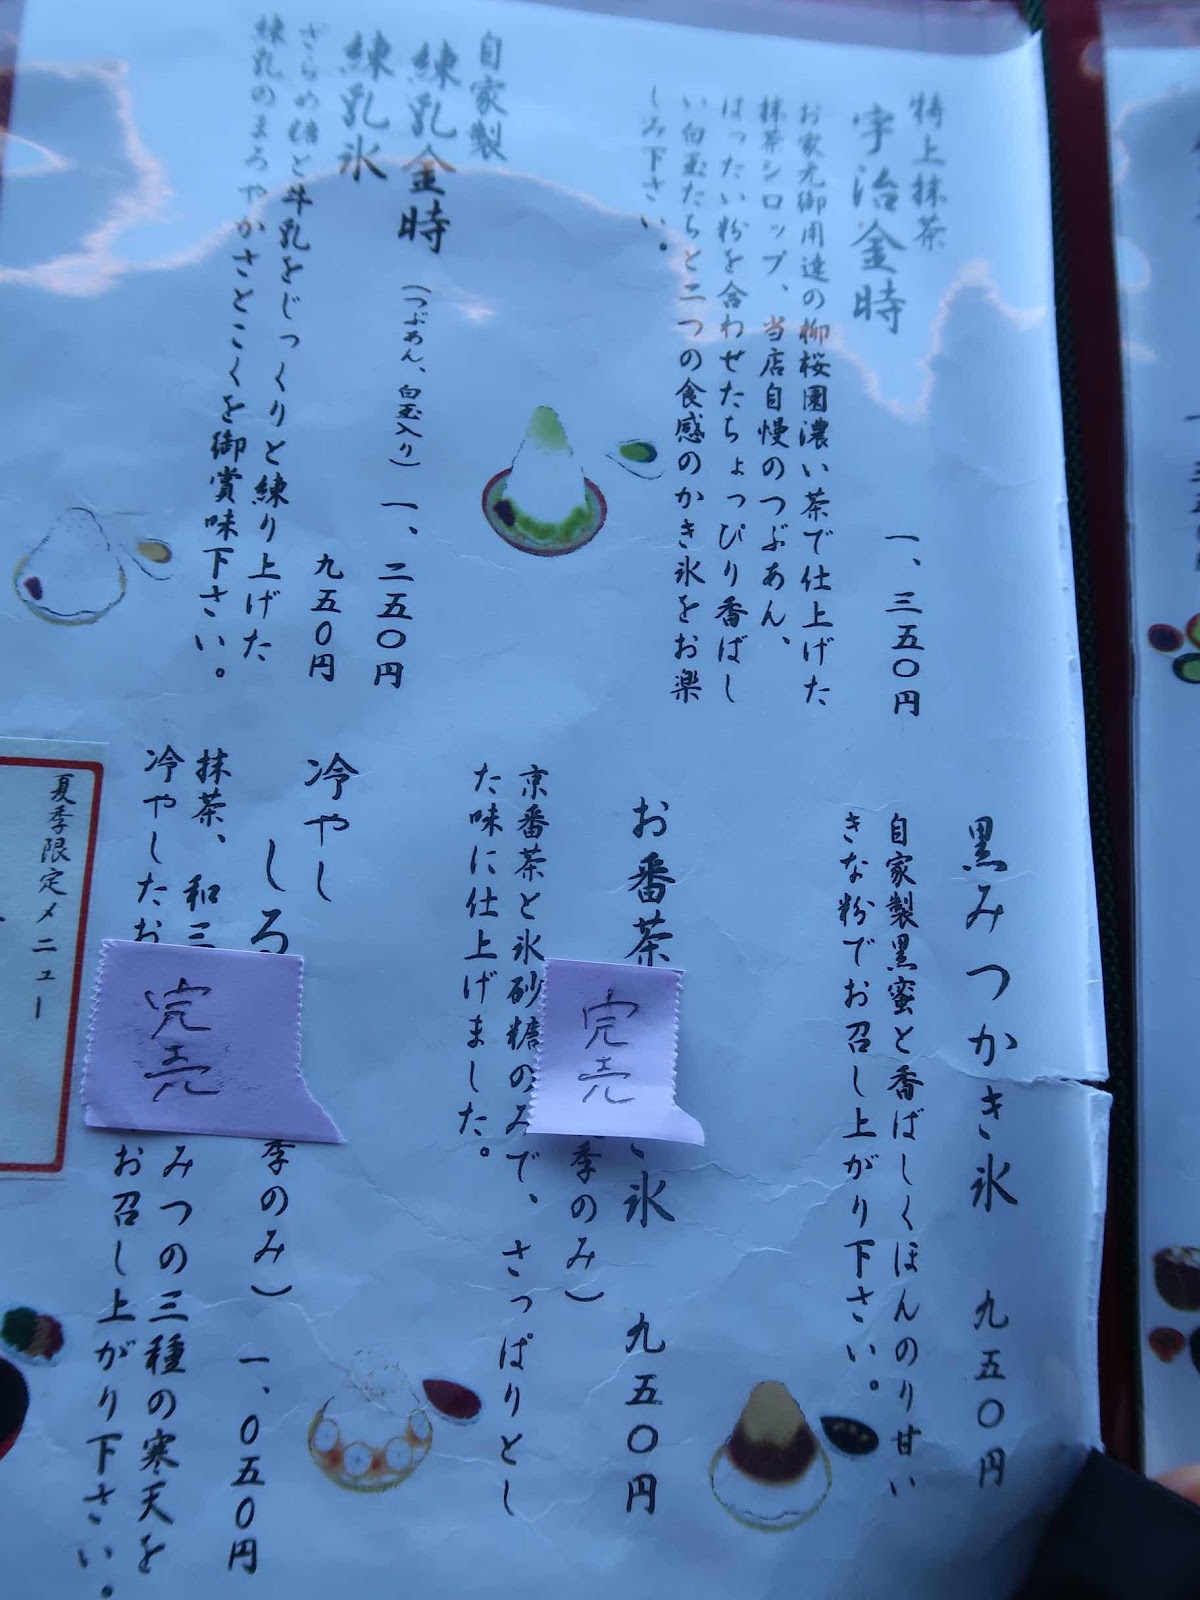 特上抹茶
宇治金時
一、三五〇円
お家元御用達の柳桜園濃い茶で仕上げた
抹茶シロップ、当店自慢のつぶあん、
はったい粉を合わせたちょっぴり香ばし
い白玉たちと二つの食感のかき氷をお楽
しみ下さい。
自家製
練乳金時
(つぶあん、白玉入り)
一、二五〇円
練乳氷
九五〇円
ざらめ糖と牛乳をじっくりと練り上げた
練乳のまろやかさとこくを御賞味下さい。
黒みつかき氷 九五〇円
自家製黒蜜と香ばしくほんのり甘い
きな粉でお召し上がり下さい。
お番茶
き氷 九五〇円
季のみ)
完売
京番茶と氷砂糖のみで、さっぱりとし
た味に仕上げました。
冷やし
しる
季のみ) 一、〇五〇円
完売
抹茶、和三
みつの三種の寒天を
冷やしたお
お召し上がり下さい。
夏季限定メニュー